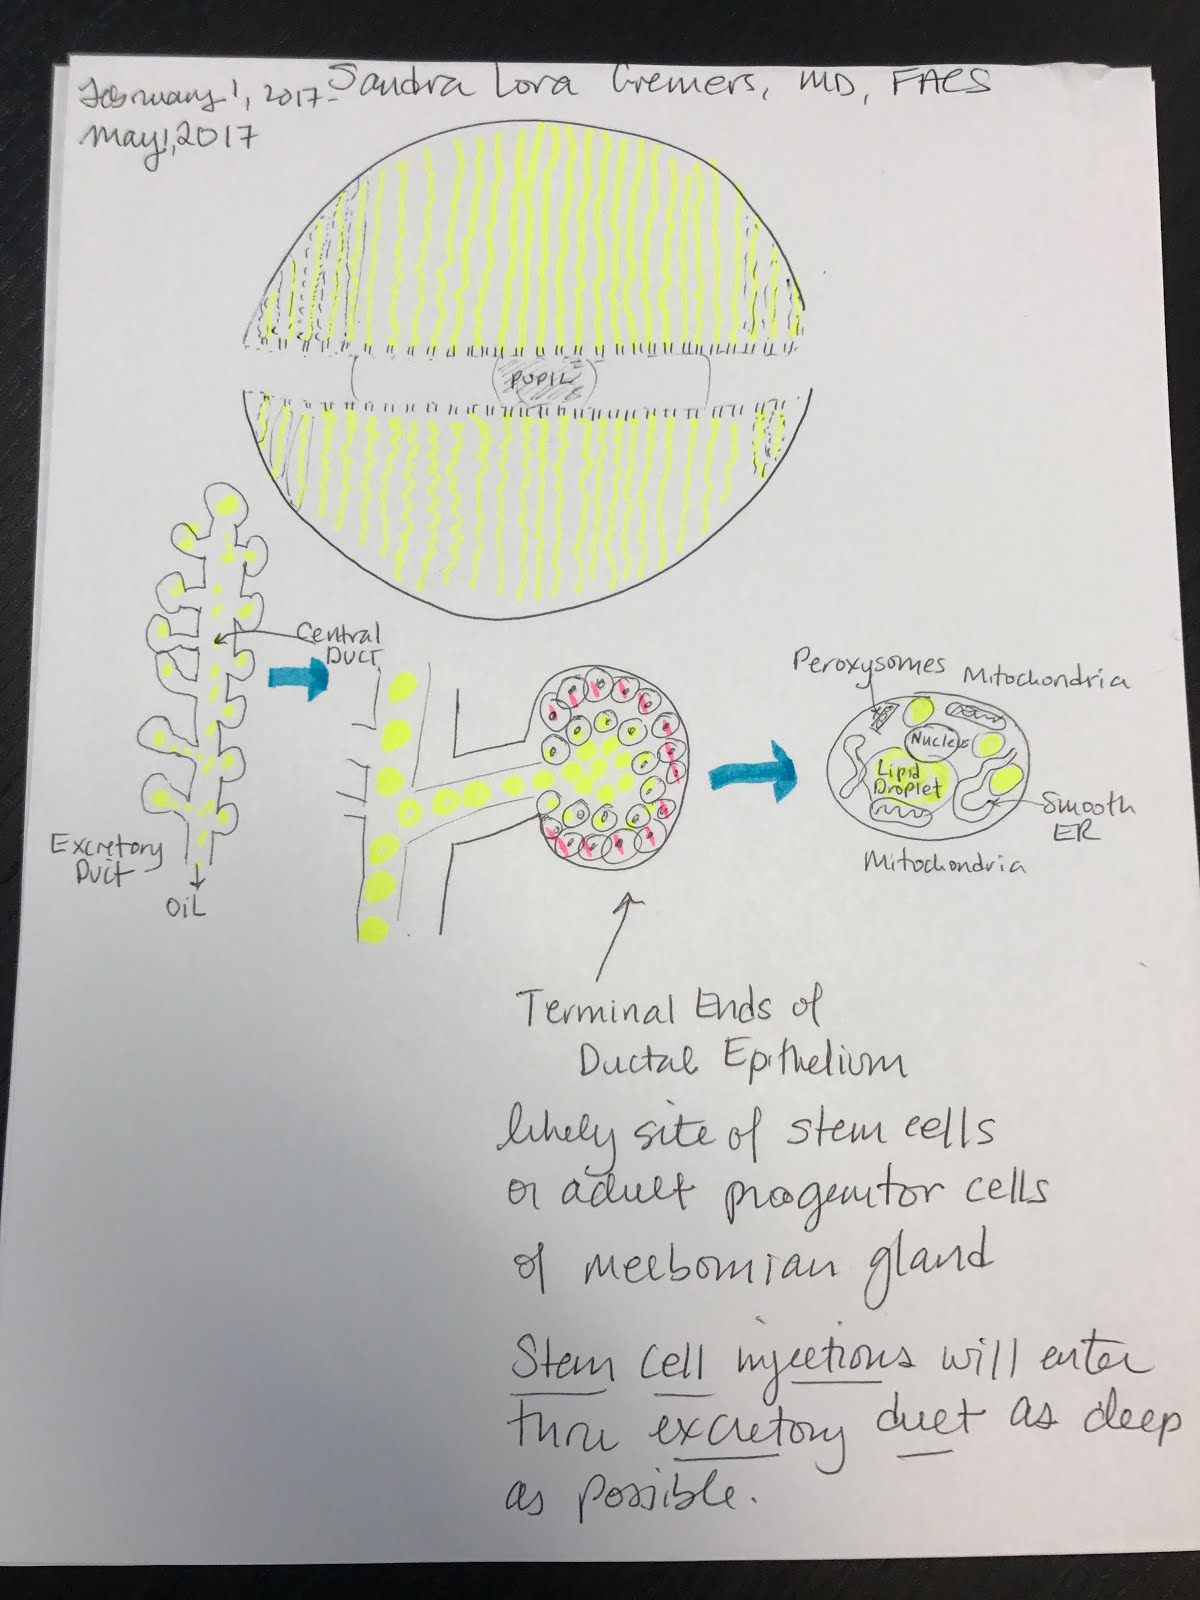 February 1, 2017- Sandra Lora Cremers, MD, FACS
May 1, 2017
PUPIL
Central
DUCT
Excretory
Duct
OIL
Peroxysomes
Mitochondria
Nucleus
Lipid
Droplet
Smooth
ER
Mitochondria
Terminal Ends of
Ductal Epithelium
likely site of stem cells
or adult progenitor cells
of meibomian gland
Stem Cell injections will enter
thru excretory duct as deep
as possible.